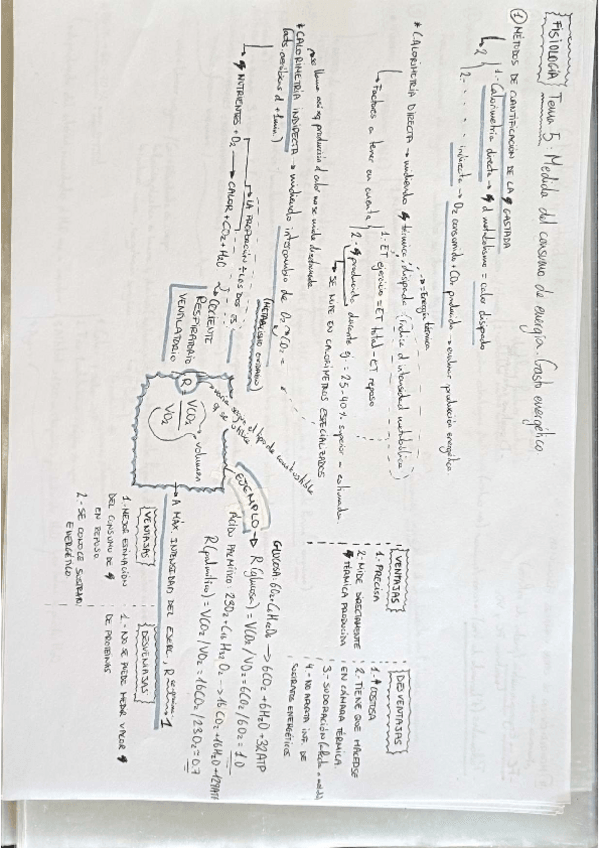 FISIOLOGÍA Tema 5: Medida del consumo de energía Gasto energético
① MÉTODOS DE CUANTIFICACIÓN DE LA GASTADA
2 1. Calorimetría directa → d metabolismo = calor disipado
2. indirecta → O2 consumido + CO2 producido → evaluar producción energética
* CALORIMETRÍA DIRECTA → midiendo térmica disipada (índice d intensidad metabólica)
→ Energía térmica
→ Factores a tener en cuenta
1. ET ejercicio = ET total - ET reposo
2. producida durante ej = 25-40% superior a estimada
→ SE MIDE EN CALORÍMETROS ESPECIALIZADOS
VENTAJAS
1. PRECISA
2. MIDE DIRECTAMENTE
TÉRMICA PRODUCIDA
DESVENTAJAS
1. COSTOSA
2. TIENE QUE HACERSE
EN CÁMARA TÉRMICA
3. SUDORACIÓN
4. NO APORTA INF. DE
SUSTRATOS ENERGÉTICOS
→ se llama así xq producción d calor no se mide directamente
* CALORIMETRÍA INDIRECTA → midiendo intercambio de O2 y CO2 =
(acts. aeróbicas d + 1 min.)
(METABOLISMO OXIDATIVO)
NUTRIENTES + O2 → CALOR + CO2 + H2O
→ LA PROPORCIÓN LOS DOS ES
→ COCIENTE
RESPIRATORIO
VENTILATORIO
R VCO2 → volumen
VO2
varía según el tipo de combustible
q se utiliza
→ A MÁX. INTENSIDAD DEL EJERC, R 1
EJEMPLO
GLUCOSA: 6O2 + C6H12O6 → 6CO2 + 6H2O + 32ATP
R(glucosa) = VCO2/VO2 = 6CO2/6O2 = 1.0
ÁCIDO PALMÍTICO: 23O2 + C16H32O2 → 16CO2 + 16H2O + 129ATP
R(palmítico) = VCO2/VO2 = 16CO2/23O2 = 0.7
VENTAJAS
1. MEJOR ESTIMACIÓN
DEL CONSUMO DE
EN REPOSO
2. SE CONOCE SUSTRATO
ENERGÉTICO
DESVENTAJAS
1. NO SE PUEDE MEDIR VALOR
DE PROTEINAS